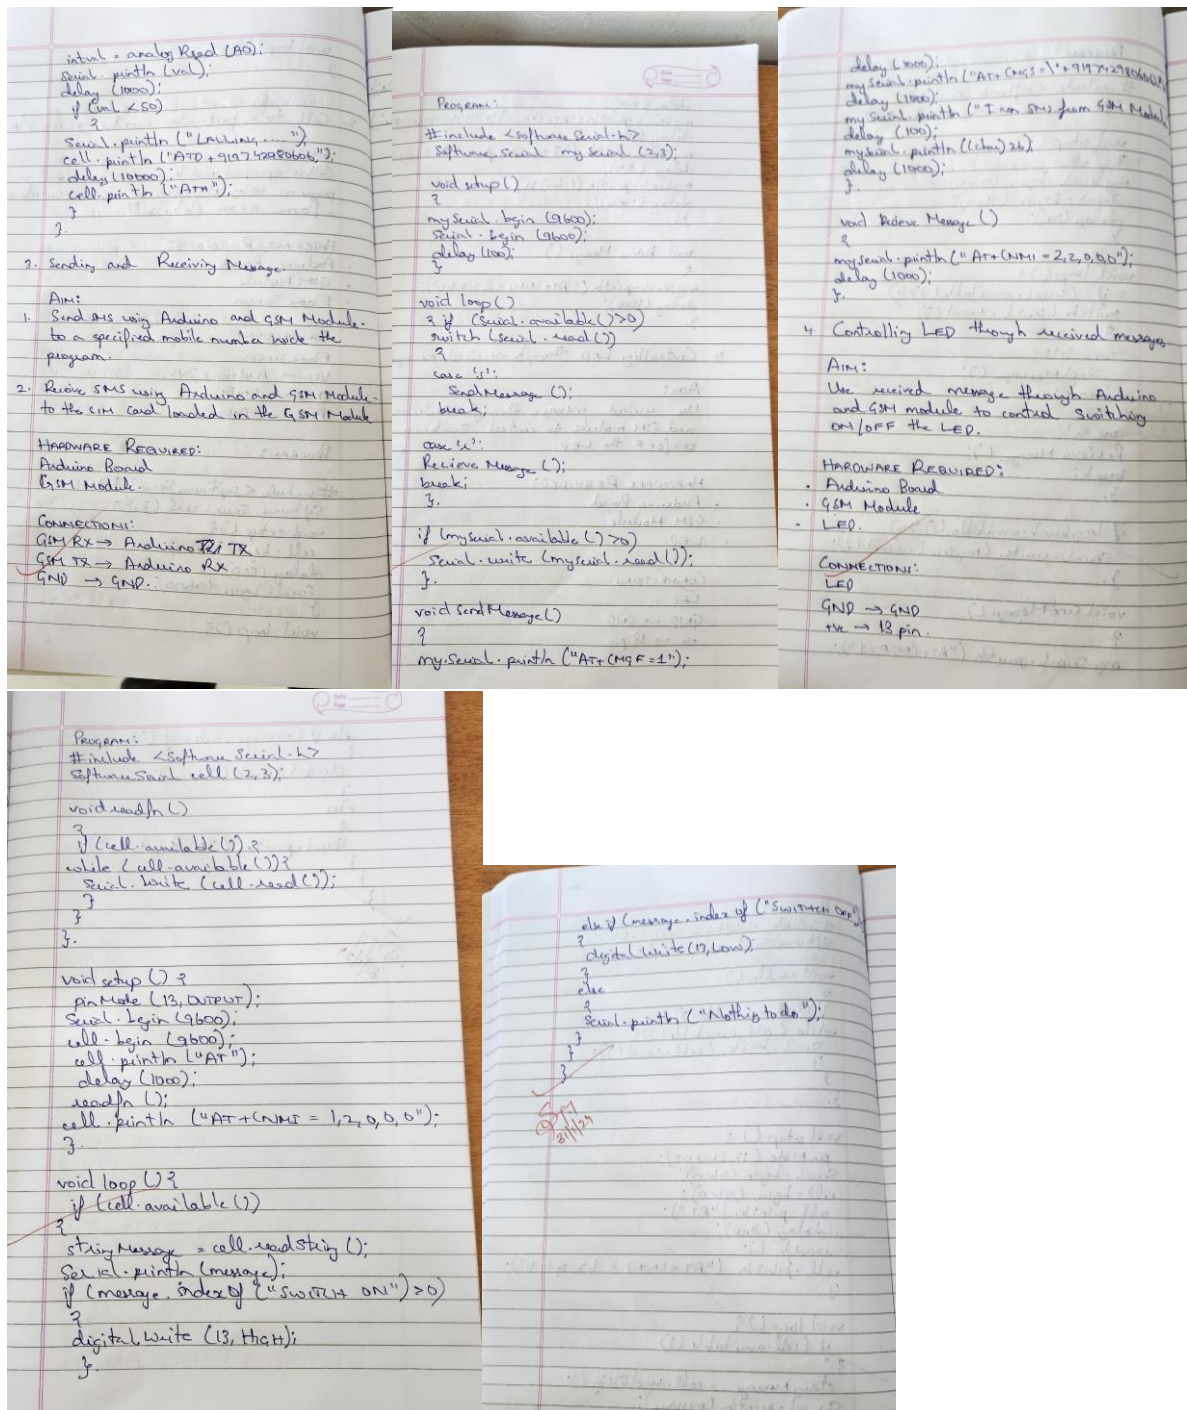 intval = analogRead (A0);
Serial.println (val);
delay (1000);
if (val <50)
{
Serial.println ("CALLING.....");
cell.println ("ATD+919742980606;");
delay (10000);
cell.println ("ATH");
}
}.
3. Sending and Receiving Message.
AIM:
1. Send SMS using Arduino and GSM Module.
to a specified mobile number inside the
program.
2. Receive SMS using Arduino and GSM Module.
to the SIM card loaded in the GSM Module
HARDWARE REQUIRED:
Arduino Board
GSM Module.
CONNECTIONS:
GSM RX → Arduino TX
GSM TX → Arduino RX
GND → GND.
PROGRAM:
#include <Software Serial.h>
Software Serial my Serial (2,3);
void setup()
{
mySerial.begin (9600);
Serial.begin (9600);
delay (100);
}
void loop()
{ if (Serial.available()>0)
switch (Serial.read())
{
case 's':
SendMessage ();
break;
case 'r':
Recieve Message ();
break;
}.
if (myserial.available()>0)
Serial.write (myserial.read());
}.
void sendMessage()
{
my.Serial.println ("AT+CMGF=1");
delay (1000);
my serial.println ("AT+CMGS=\"+919742980606\
delay (1000);
my Serial.println ("I am SMS from GSM Module
delay (100);
myserial.println ((char) 26);
delay (1000);
}.
void Recieve Message ()
{
myserial.println ("AT+CNMI=2,2,0,0,0");
delay (1000);
}.
4. Controlling LED through received messages
AIM:
Use received message through Arduino
and GSM module to control Switching
ON/OFF the LED.
HARDWARE REQUIRED:
• Arduino Board
• GSM Module
• LED.
CONNECTIONS:
LED
GND → GND
+ve → 13 pin.
PROGRAM:
#include <Software Serial.h>
Software Serial cell (2,3);
void readfn ()
{
if (cell.available()) {
while (cell.available()){
Serial.Write (cell.read());
}
}
}.
void setup () {
pinMode (13, OUTPUT);
Serial.begin (9600);
cell.begin (9600);
cell.println ("AT");
delay (1000);
readfn ();
cell.println ("AT+CNMI = 1,2,0,0,0");
}.
void loop () {
if (cell.available())
{
string Message = cell.readString ();
Serial.println (message);
if (message.index of ("SWITCH ON")>0)
{
digital.write (13, HIGH);
}.
else if (message.index of ("SWITCH OFF")
{
digital write (13, LOW);
}
else
{
Serial.println ("Nothing to do");
}
}
}.
31/1/24